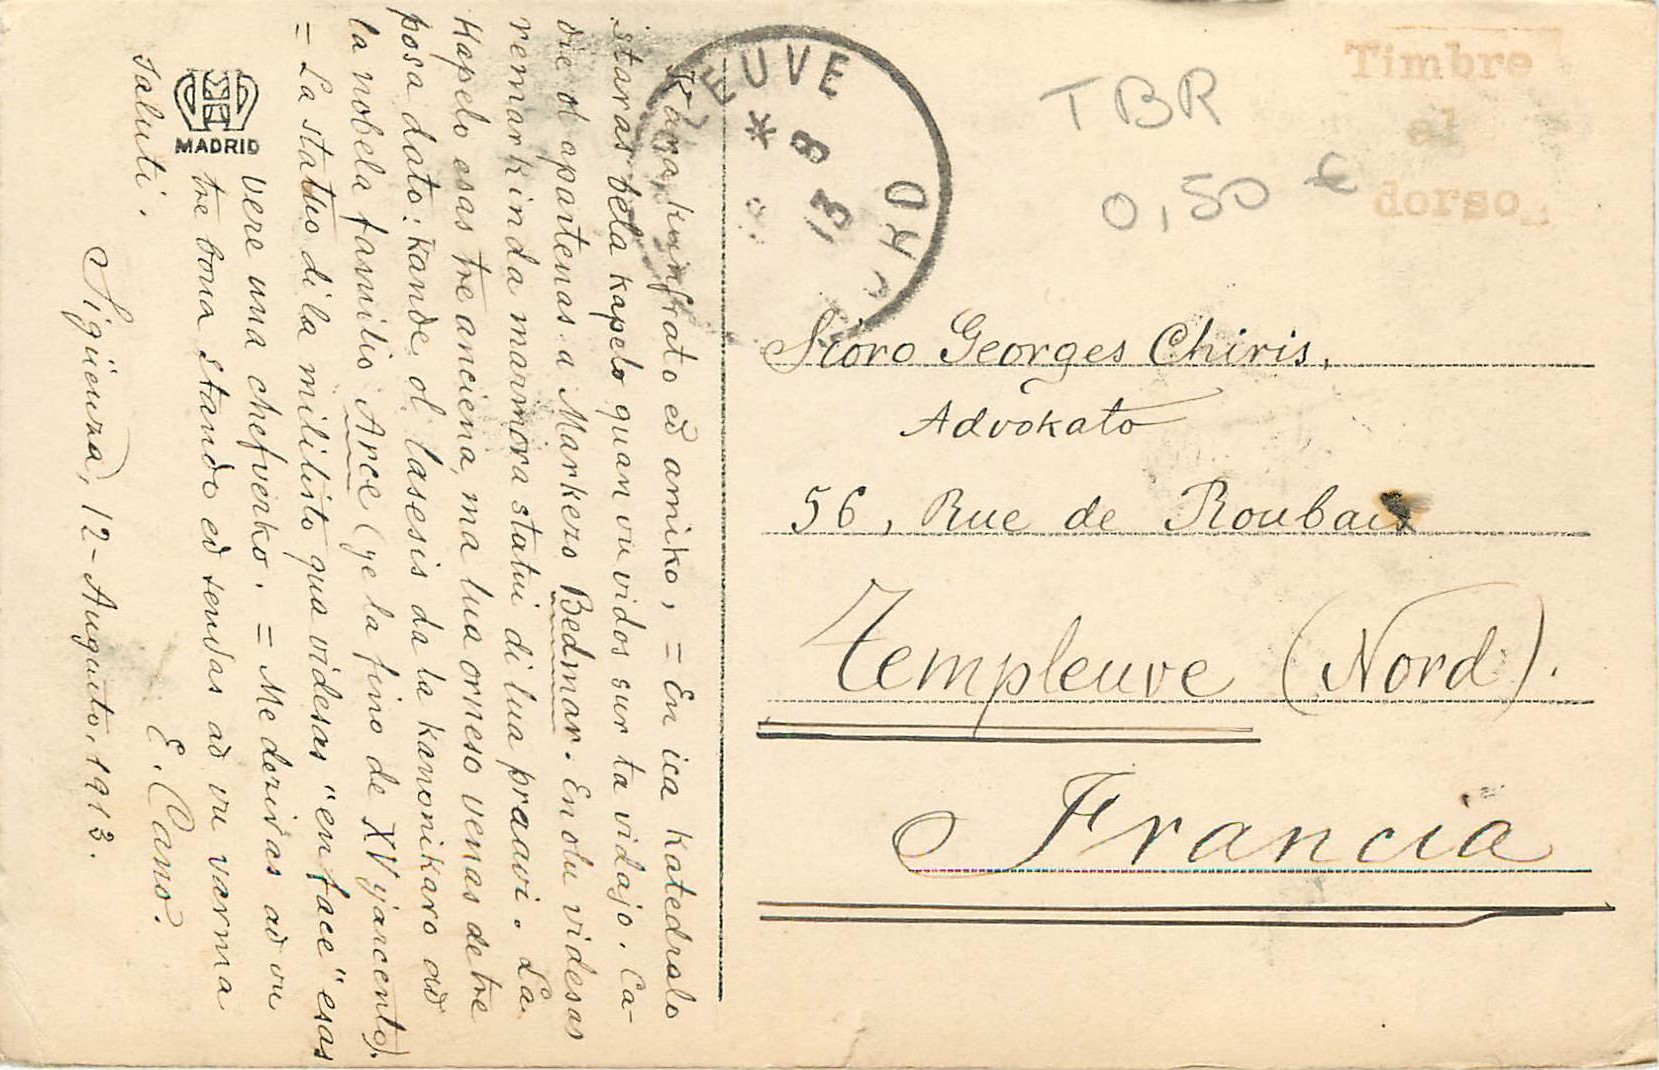 Kara kunfrato ed amiko, = En ica katedralo
staras bela kapelo quan vu vidos sur ta vidajo. Ca-
die ol apartenas a Markezo Bedmar. En olu videsas
remarkinda marmora statui di lua praavi. La
Kapelo esas tre anciena, ma lua orneso venas de tre
posa dato: kande ol lasesis da la kanonikaro ad
la nobela familio Arce (ye la fino de XV yarcento).
= La statuo di la militisto qua videsas "en face" esas
vere una chefverko. = Me deziras ad vu
tre bona stando ed sendas ad vu varma
saluti.
E. Cano.
Sigüenza, 12-Augusto-1913.
MADRID
EUVE
* 8
13
NORD
TBR
0,50 €
Timbre
al
dorso
Sioro Georges Chiris,
Advokato
56, Rue de Roubaix
Templeuve (Nord).
Francia